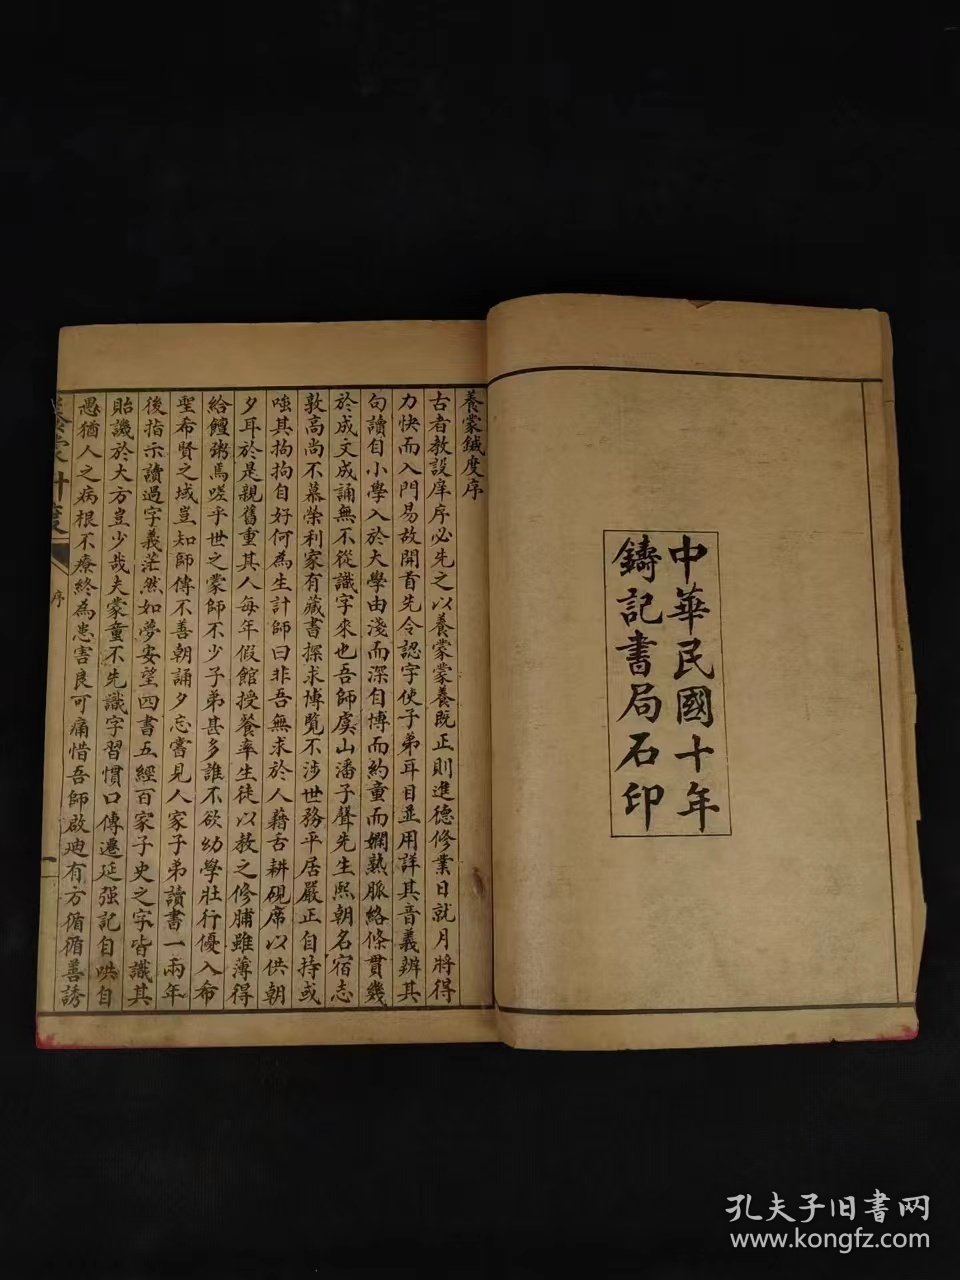 中華民國十年
鑄記書局石印
養蒙鍼度序
古者教設庠序必先之以養蒙蒙養既正則進德修業日就月將得
力快而入門易故開首先令認字使子弟耳目並用詳其音義辨其
句讀自小學入於大學由淺而深自博而約童而嫻熟脈絡條貫幾
於成文成誦無不從識字來也吾師虞山潘子聲先生熙朝名宿志
敦高尚不慕榮利家有藏書探求博覽不涉世務平居嚴正自持或
嗤其拘拘自好何為生計師曰非吾無求於人藉舌耕硯席以供朝
夕耳於是親舊重其人每年假館授餐率生徒以教之修脯雖薄得
給饘粥焉嗟乎世之蒙師不少子弟甚多誰不欲幼學壯行優入希
聖希賢之域豈知師傳不善朝誦夕忘嘗見人家子弟讀書一兩年
後指示讀過字義茫然如夢安望四書五經百家子史之字皆識其
貽譏於大方豈少哉夫蒙童不先識字習慣口傳遷延强記自哄自
愚猶人之病根不療終為患害良可痛惜吾師啟迪有方循循善誘
養蒙針度
序
一
孔夫子旧书网
www.kongfz.com